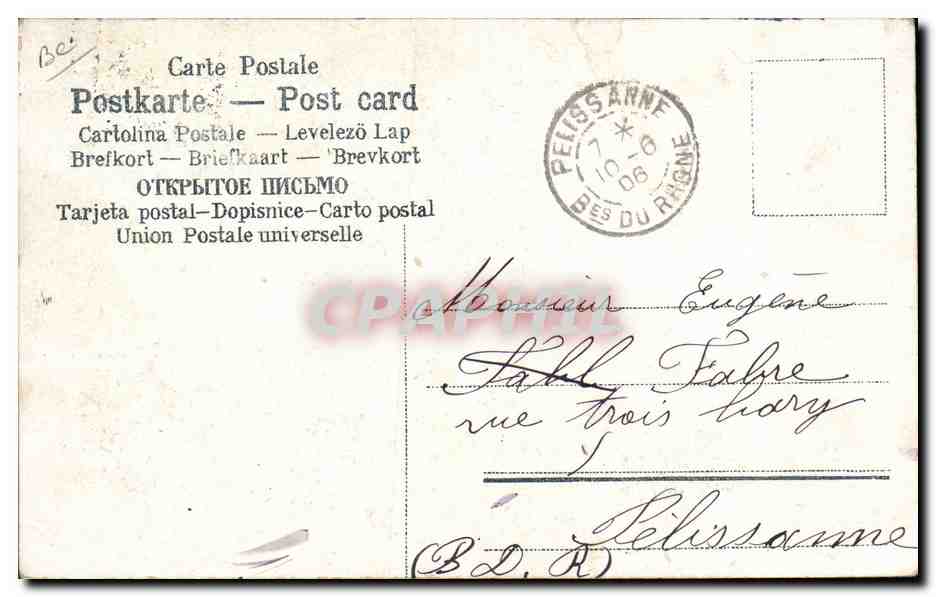 BC.
Carte Postale
Postkarte — Post card
Cartolina Postale — Levelezö Lap
Brefkort — Briefkaart — Brevkort
ОТКРЫТОЕ ПИСЬМО
Tarjeta postal—Dopisnice—Carto postal
Union Postale universelle
PELISSANNE
7 *
10 - 6
06
Bes DU RHONE
CPAPHIL
Monsieur Eugène
Fabre
rue trois
Pélissanne
(B D. R)